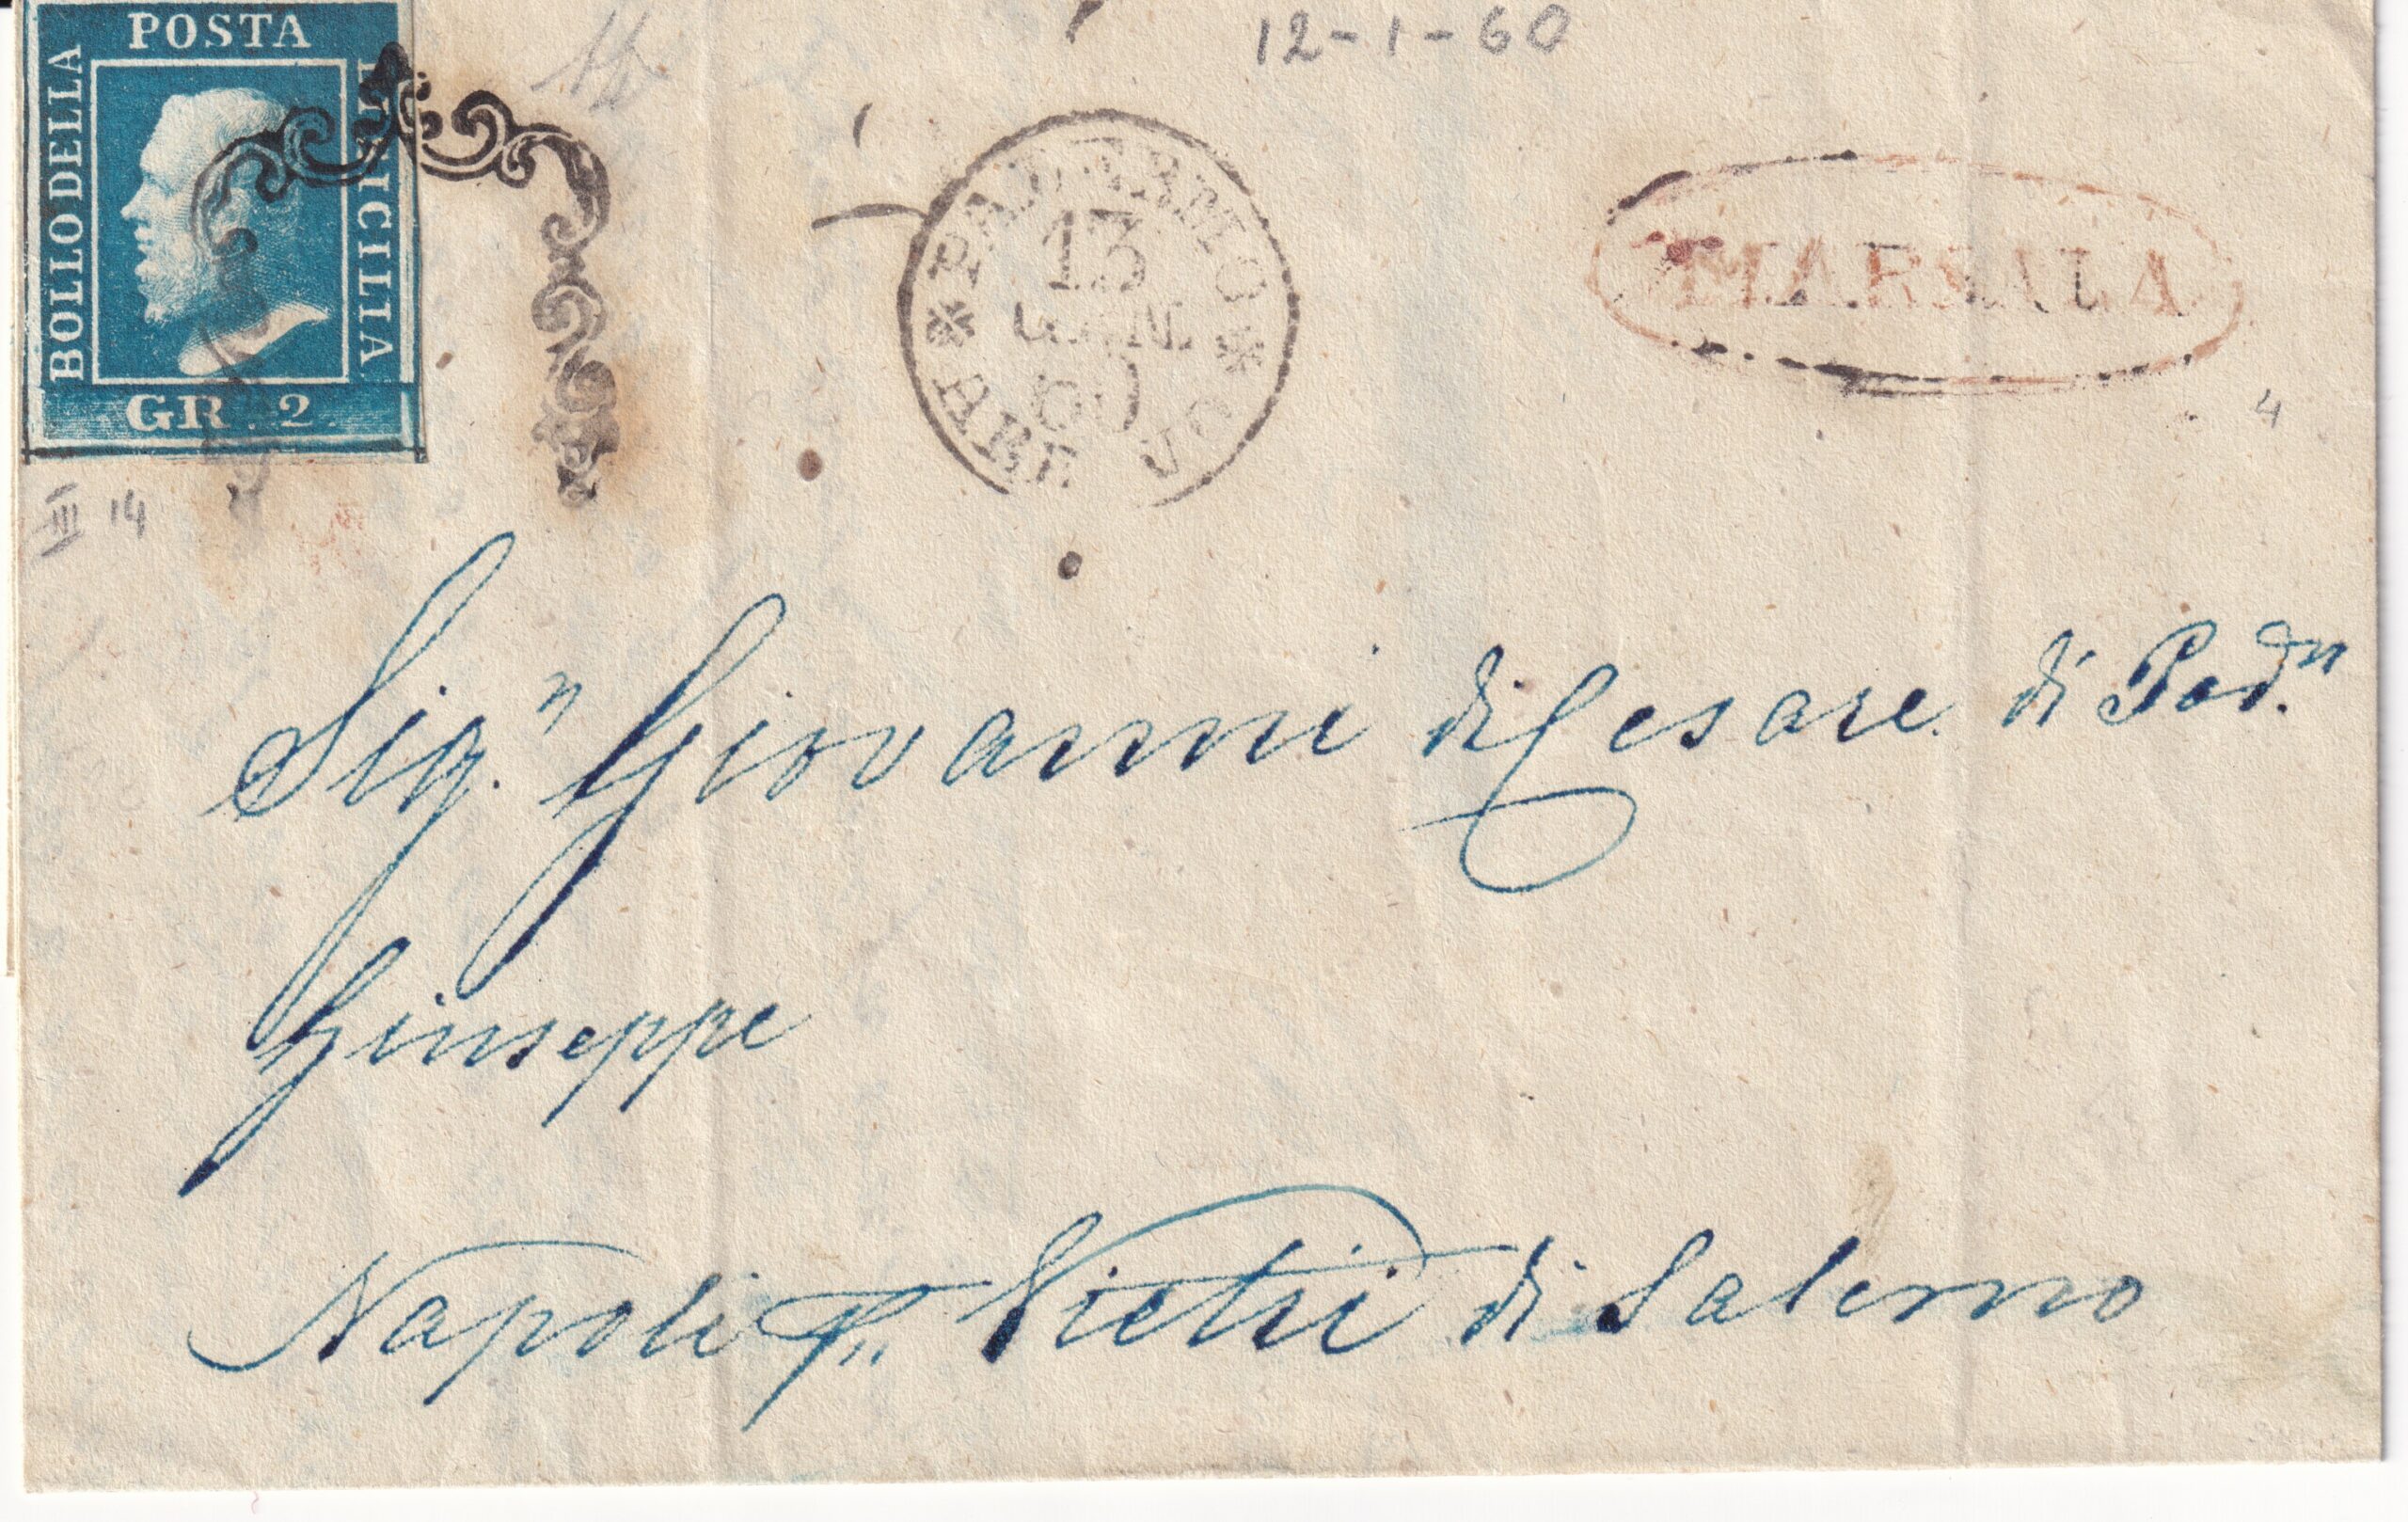 POSTA
BOLLO DELLA
SICILIA
GR. 2.
12-1-60
PALERMO
13
GEN.
60
MARSALA
4
III 14
Sig.r Giovanni di Cesare di
Giuseppe
Napoli p. Vietri di Salerno